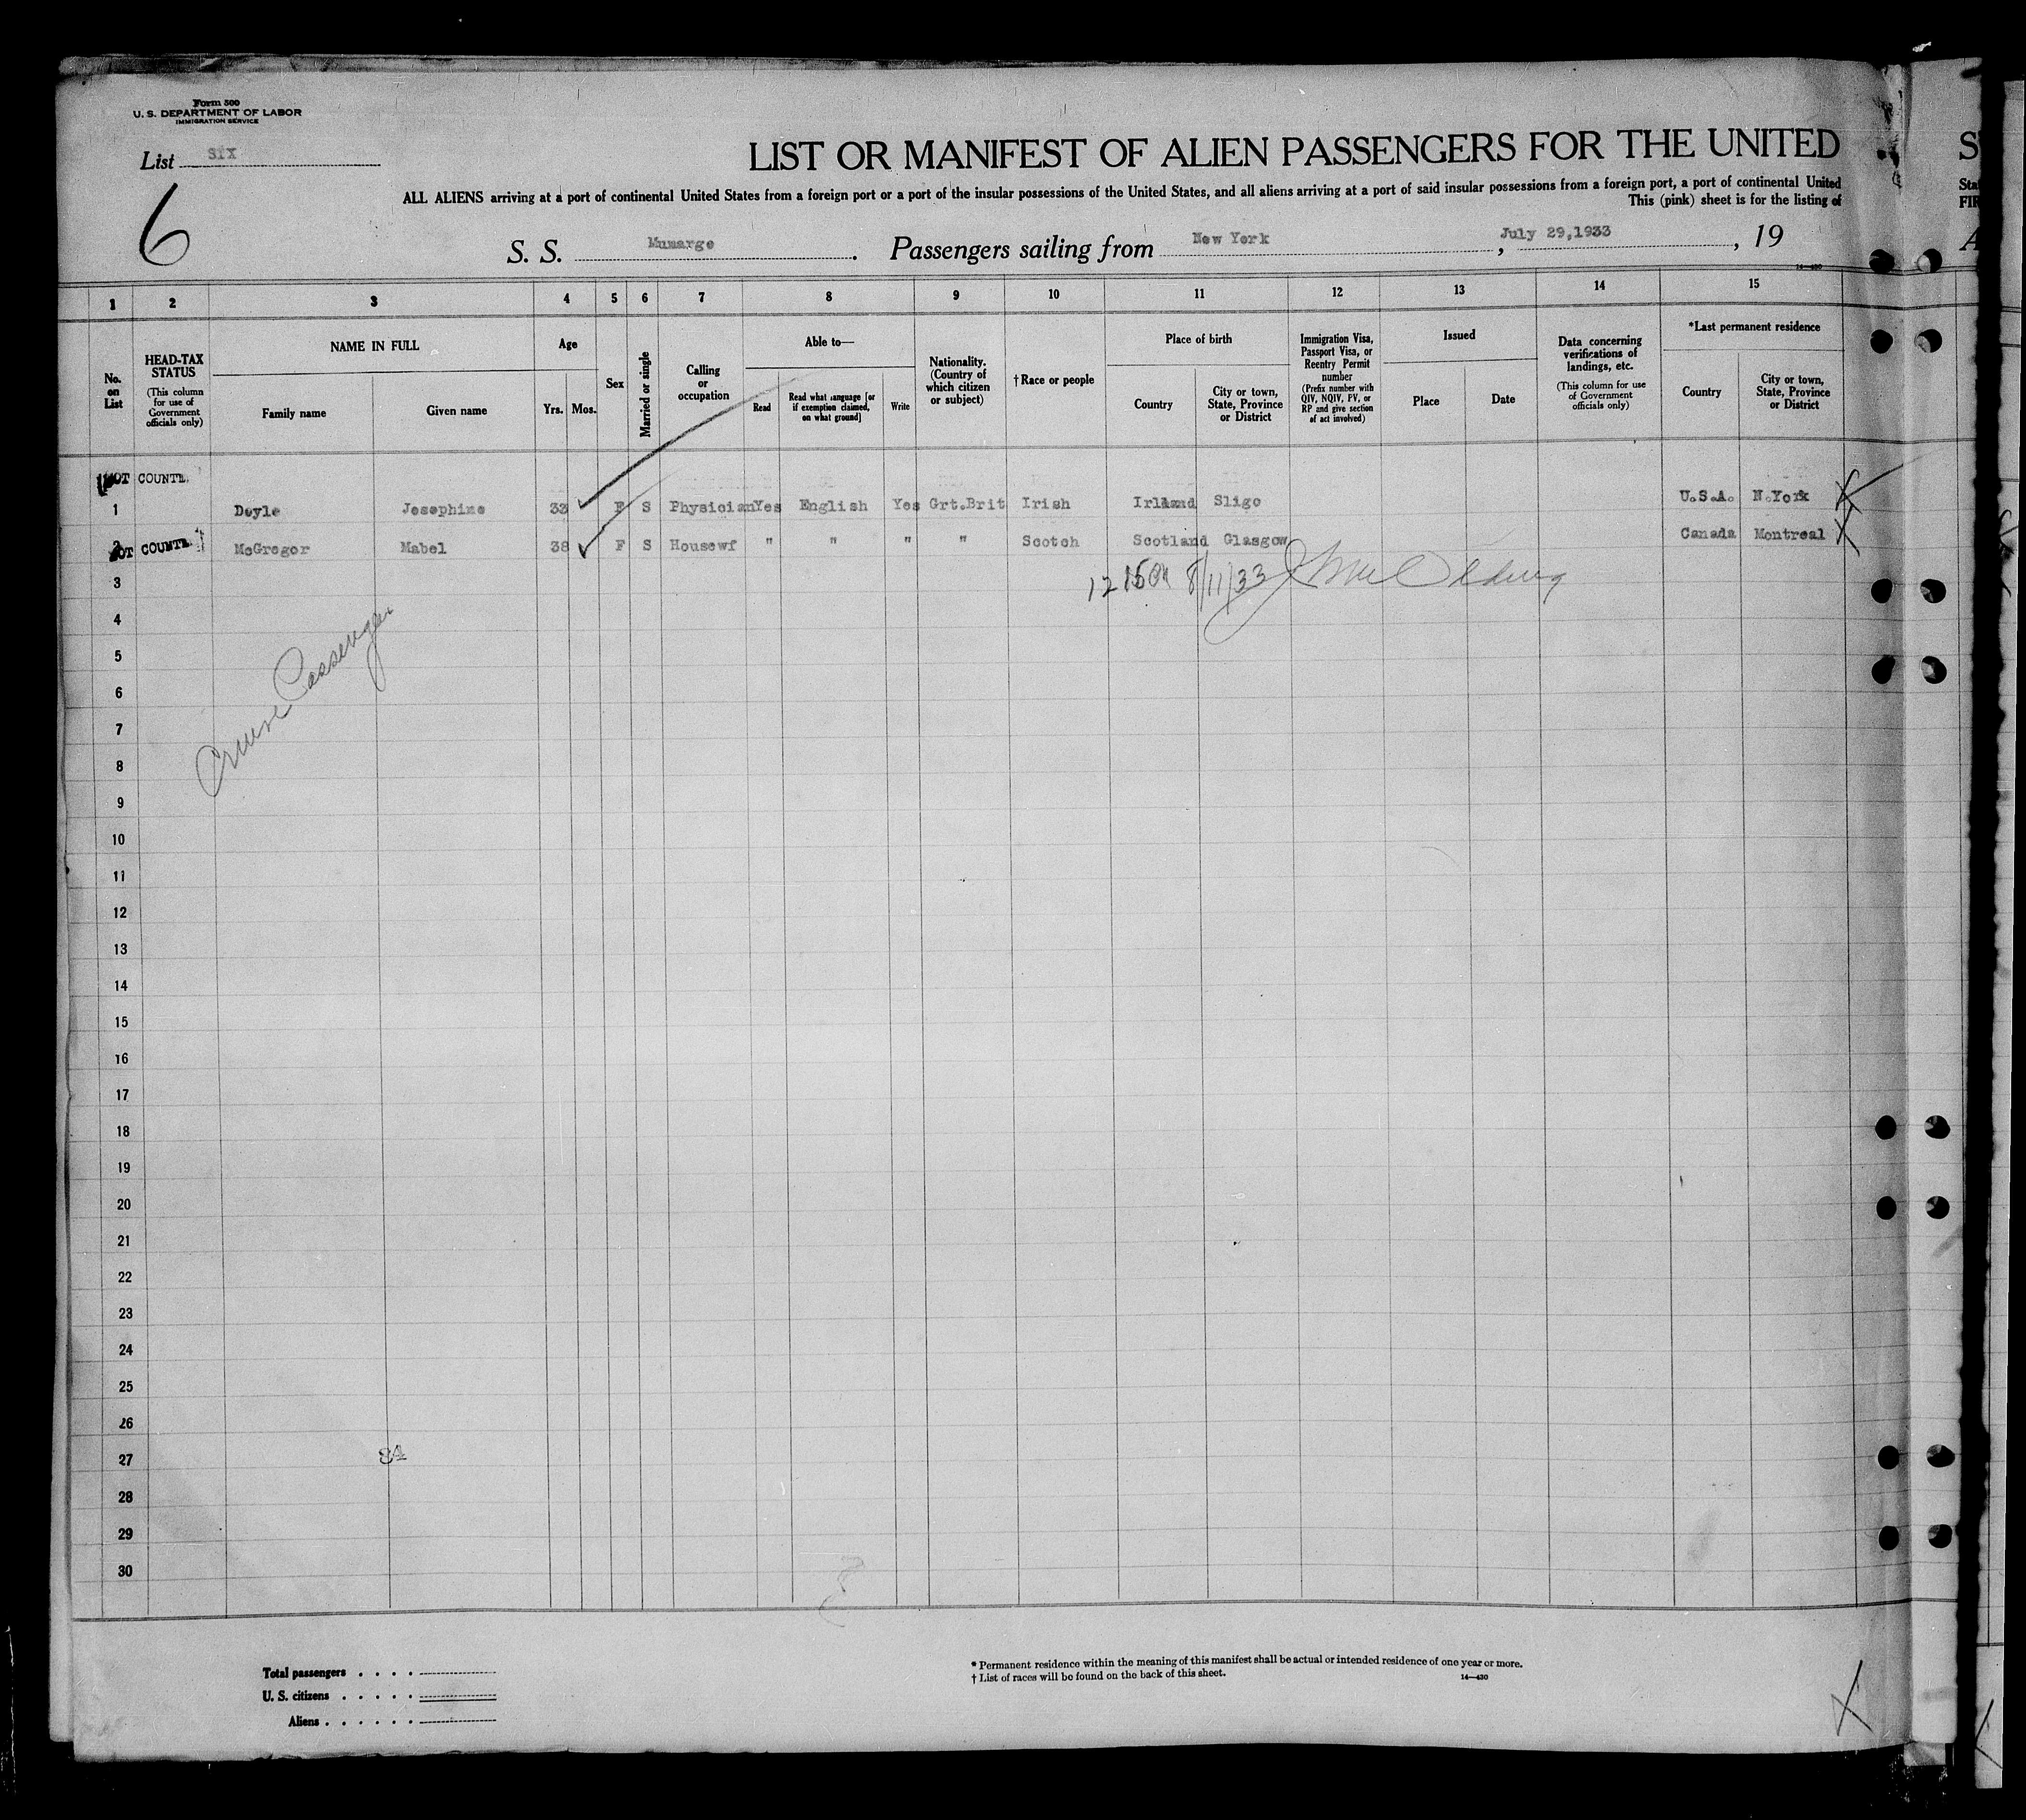 Form 500
U. S. DEPARTMENT OF LABOR
IMMIGRATION SERVICE
List Six
6
LIST OR MANIFEST OF ALIEN PASSENGERS FOR THE UNITED
ALL ALIENS arriving at a port of continental United States from a foreign port or a port of the insular possessions of the United States, and all aliens arriving at a port of said insular possessions from a foreign port, a port of continental United
This (pink) sheet is for the listing of
S. S. Munargo. Passengers sailing from New York, July 29,1933, 19
14—430
1 2 3 4 5 6 7 8 9 10 11 12 13 14 15
No. on List
HEAD-TAX STATUS
(This column for use of Government officials only)
NAME IN FULL
Family name
Given name
Age
Yrs.
Mos.
Sex
Married or single
Calling or occupation
Able to—
Read
Read what language [or if exemption claimed, on what ground]
Write
Nationality. (Country of which citizen or subject)
† Race or people
Place of birth
Country
City or town, State, Province or District
Immigration Visa, Passport Visa, or Reentry Permit number
(Prefix number with QIV, NQIV, PV, or RP and give section of act involved)
Issued
Place
Date
Data concerning verifications of landings, etc.
(This column for use of Government officials only)
*Last permanent residence
Country
City or town, State, Province or District
1 Doyle Josephine 33 F S Physician Yes English Yes Grt.Brit Irish Irland Sligo U.S.A. N.York
2 McGregor Mabel 38 F S Housewf " " " " Scotch Scotland Glasgow Canada Montreal
3 8/11/33
4
5
6
7
8
9
10
11
12
13
14
15
16
17
18
19
20
21
22
23
24
25
26
27
28
29
30
Cruise Passenger
34
Total passengers . . . .
U. S. citizens . . . . .
Aliens . . . . . .
* Permanent residence within the meaning of this manifest shall be actual or intended residence of one year or more.
† List of races will be found on the back of this sheet.
14—430